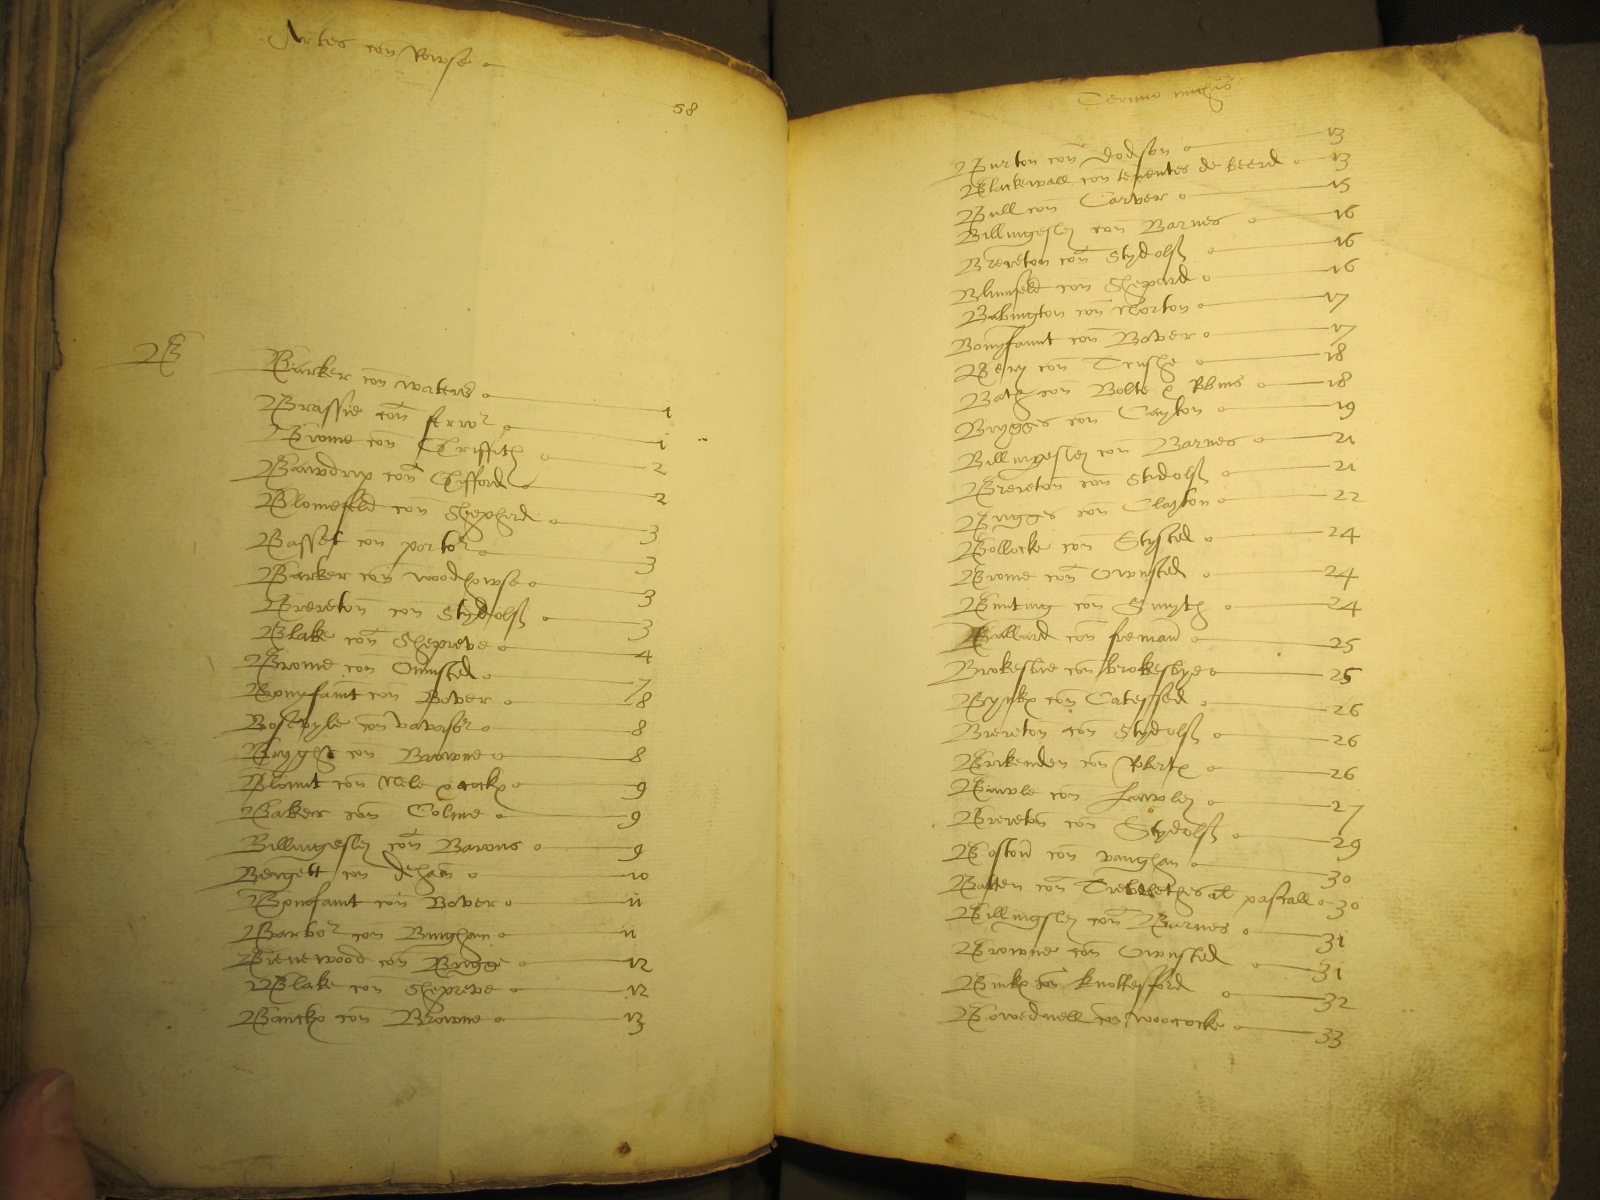 Artes con Rowse
58
B
Barker con waters 1
Brassie con ferror 1
Brome con Griffith 2
Bawdrip con Gifford 2
Blomefeld con Shepherd 3
Basset con portor 3
Barker con woodhowse 3
Brereton con Stydolf 3
Blake con Shepreve 4
Brome con Ownsted 7
Bonyfaunt con Bover 8
Bostvyle con vavasor 8
Bryght con Browne 8
Blount con Nele 9
Baker con Colme 9
Billingesley con Barons 9
Bengett con deham 10
Bonyfaunt con Bover 11
Barbor con Bingham 11
Brenewood con Brigge 12
Blake con Shepreve 12
Banckes con Browne 13
Termino
Burton con Dodson 13
Blackewall con tenentes de beerd 13
Bull con Carver 15
Billingesley con Barnes 16
Brereton con Stydolf 16
Blumfeld con Shepard 16
Babington con Norton 17
Bonyfaunt con Bover 17
Bery con 18
Bath con Bolte 18
Brygges con Cayton 19
Billingesley con Barnes 21
Brereton con Stidolf 21
Brigges con Clayton 22
Bollocke con Stysted 24
Brome con Ownsted 24
Bunting con Smyth 24
Ballard con freman 25
Brokeslie con brokeslye 25
Bynkes con Catessed 26
Brereton con Stydolf 26
Brikenden con Robertes 26
con Lawley 27
Brereton con Stydolf 29
Boston con vaughan 30
Batten con al pascall 30
Billingsley con Barnes 31
Browne con Ownsted 31
Binkes con knottesfford 32
Bowednell con woococke 33